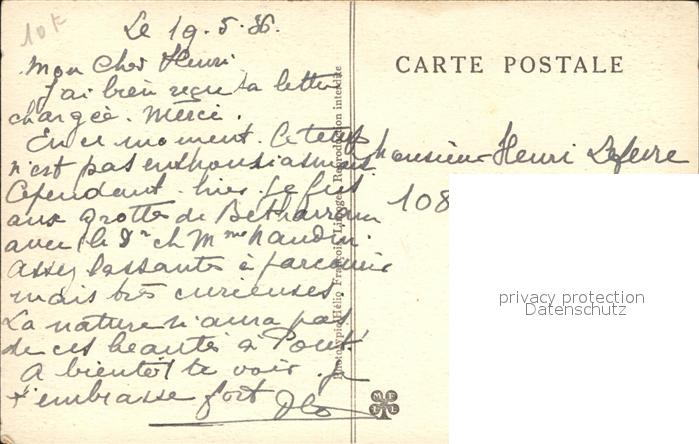 10k
Le 19.5.36.
Mon Cher Henri
J'ai bien reçu ta lettre
chargée. Merci.
En ce moment. Le temps
n'est pas enthousiasmant
Cependant. hier. je fus
aux grottes de Betharram
avec le Dr et Mme Naudin.
Assez lassantes à parcourir
mais très curieuses
La nature n'aura pas
de ces beautés à
A bientôt te voir. Je
t'embrasse fort
CARTE POSTALE
Monsieur Henri Lefevre
108
Phototypie-Hélio François, Limoges Reproduction interdite
privacy protection
Datenschutz